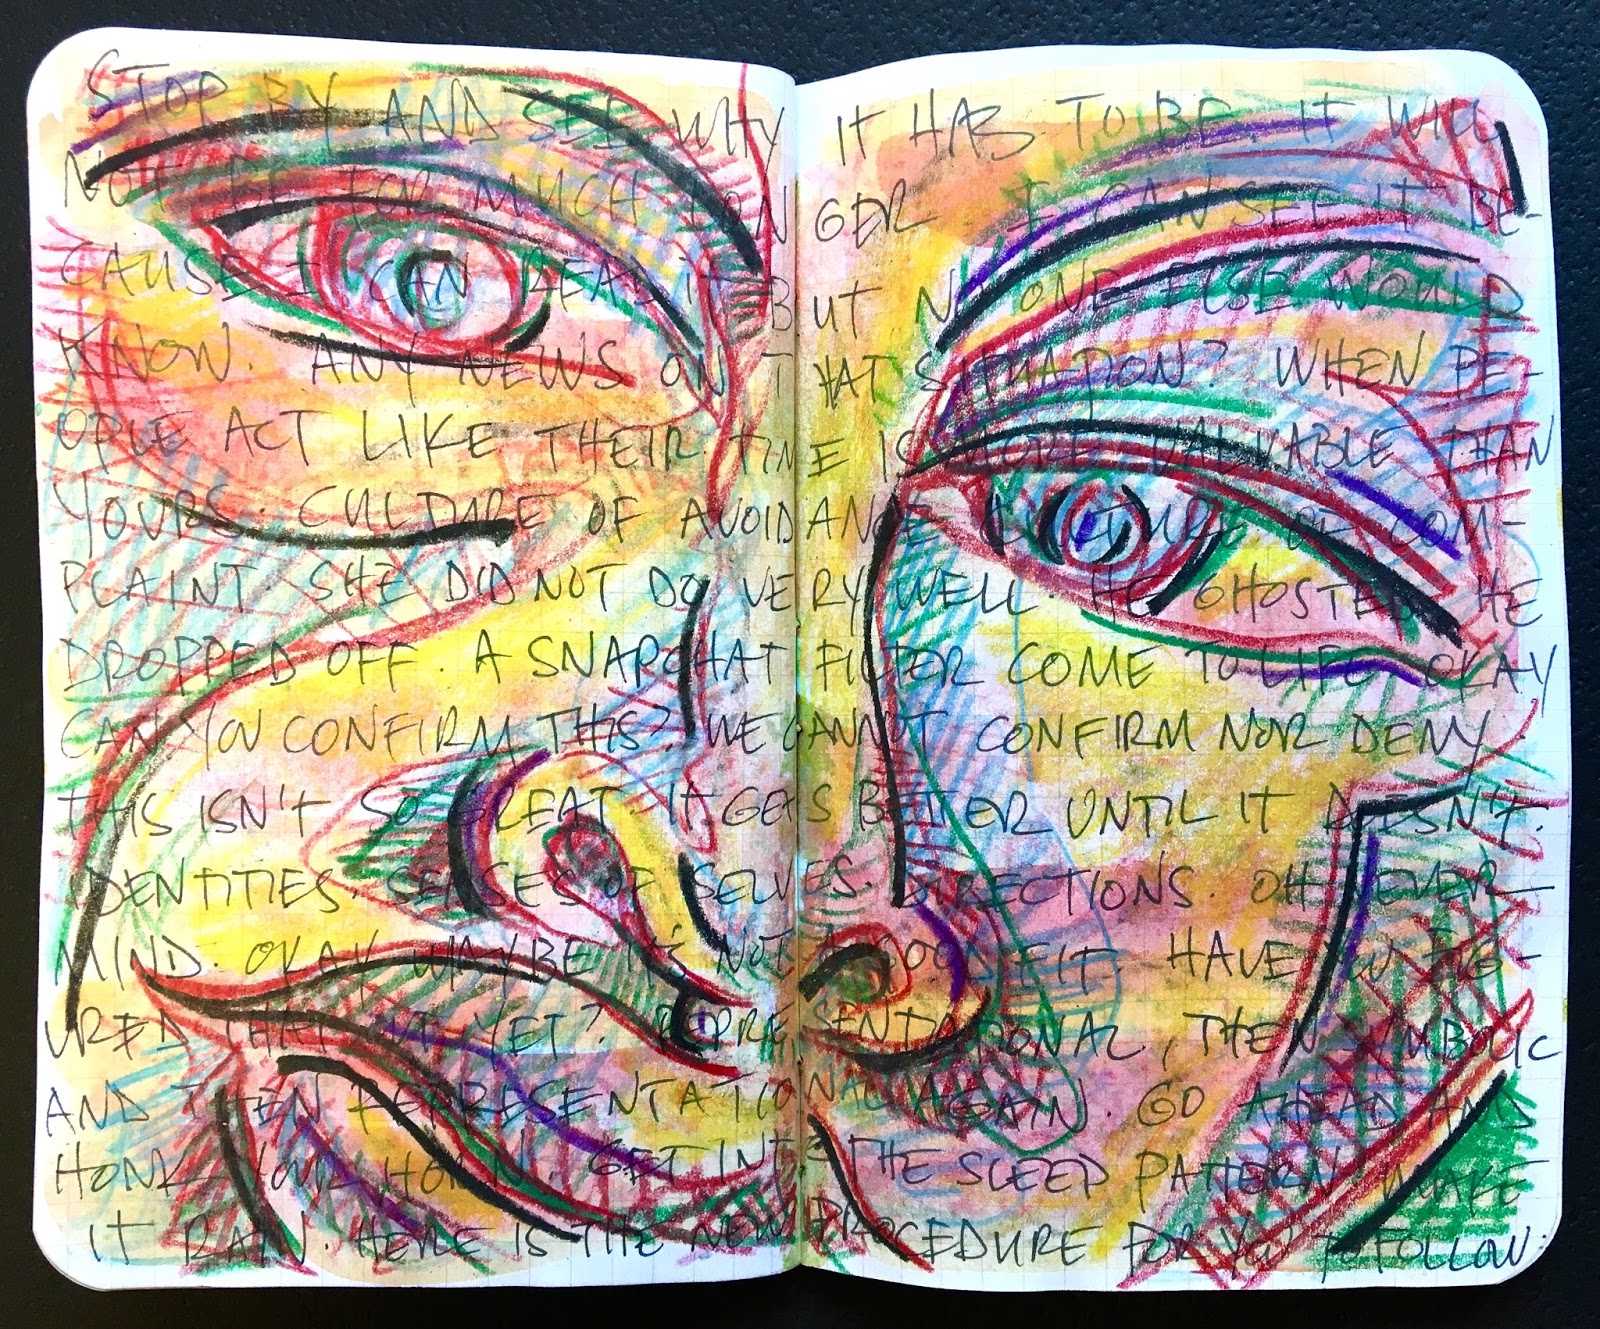 STOP BY AND SEE WHY IT HAS TO BE. IT WILL
NOT BE FOR MUCH LONGER. I CAN SEE IT BE-
CAUSE I CAN READ IT BUT NO ONE ELSE WOULD
KNOW. ANY NEWS ON THAT SITUATION? WHEN PE-
OPLE ACT LIKE THEIR TIME IS MORE VALUABLE THAN
YOURS. CULTURE OF AVOIDANCE CULTURE OF COM-
PLAINT. SHE DID NOT DO VERY WELL. HE GHOSTED. HE
DROPPED OFF. A SNAPCHAT FILTER COME TO LIFE. OKAY
CAN YOU CONFIRM THIS? WE CANNOT CONFIRM NOR DENY.
THIS ISN'T SO GREAT. IT GETS BETTER UNTIL IT DOESN'T.
IDENTITIES. SENSES OF SELVES. DIRECTIONS. OH NEVER-
MIND. OKAY MAYBE IT'S NOT A GOOD FIT. HAVE YOU FIG-
URED THAT OUT YET? REPRESENTATIONAL, THEN SYMBOLIC
AND THEN REPRESENTATIONAL AGAIN. GO AHEAD AND
HONK YOUR HORN. GET INTO THE SLEEP PATTERN. MAKE
IT RAIN. HERE IS THE NEW PROCEDURE FOR YOU TO FOLLOW.